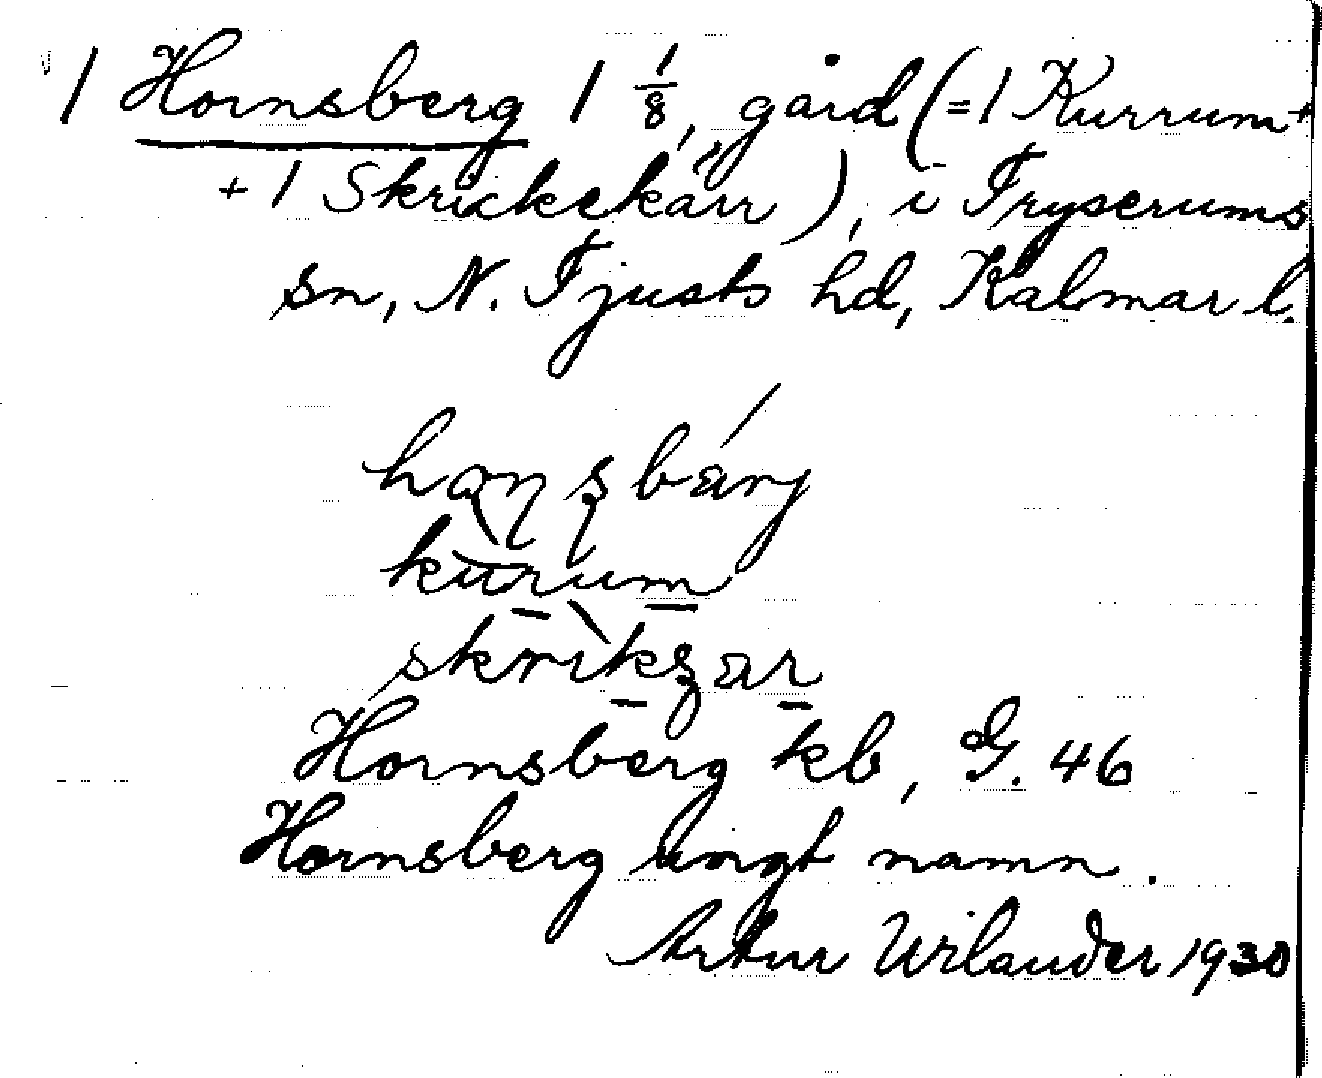 1 Hornsberg 1 1/8, gård (=1 Kurrum+
+ 1 Skrickekärr), i Tryserums
sn, N. Tjusts hd, Kalmar l.
Hornsberg kb, G. 46
Hornsberg ungt namn.
Artur Wilander 1930